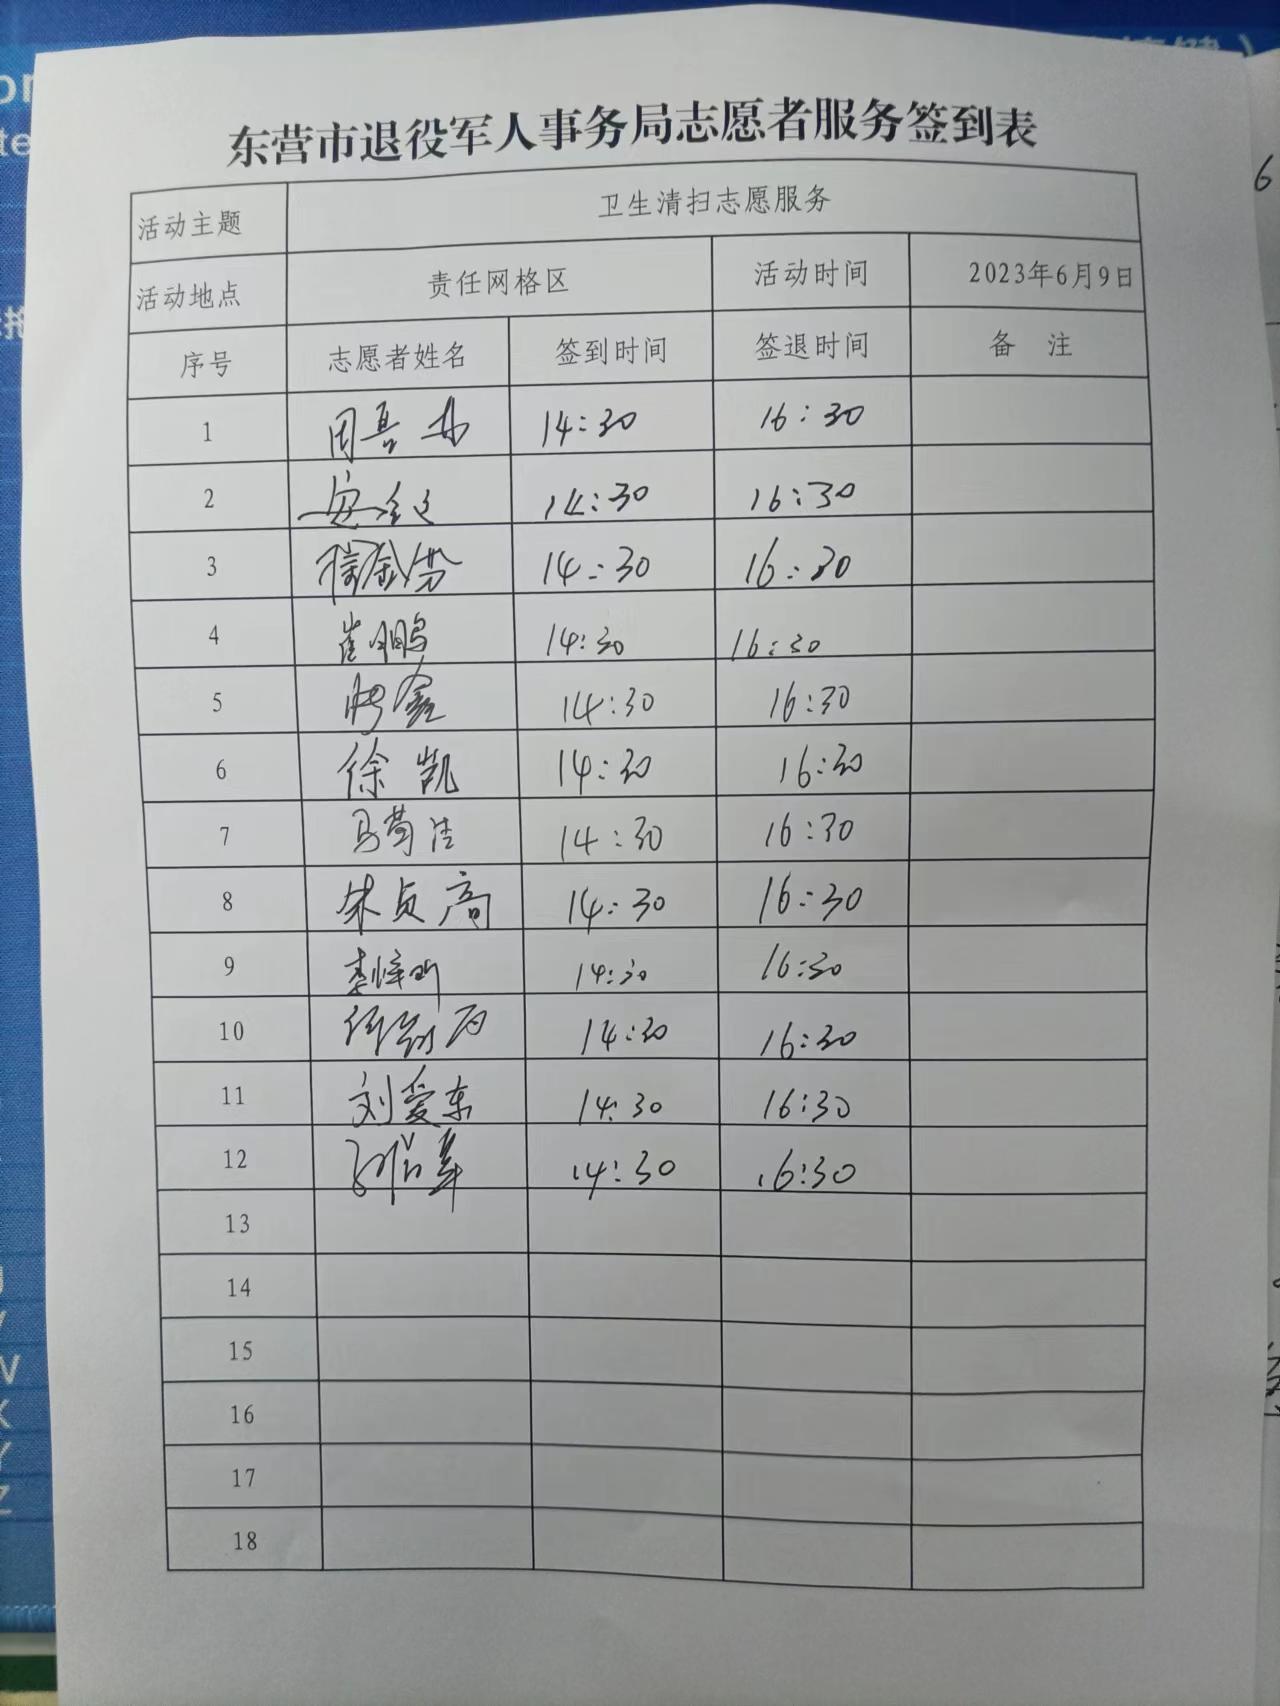 东营市退役军人事务局志愿者服务签到表
活动主题 卫生清扫志愿服务
活动地点 责任网格区 活动时间 2023年6月9日
序号 志愿者姓名 签到时间 签退时间 备 注
1 14:30 16:30
2 14:30 16:30
3 14:30 16:30
4 崔鹏 14:30 16:30
5 14:30 16:30
6 徐凯 14:30 16:30
7 马菊洁 14:30 16:30
8 朱贞高 14:30 16:30
9 14:30 16:30
10 14:30 16:30
11 刘爱东 14:30 16:30
12 14:30 16:30
13
14
15
16
17
18